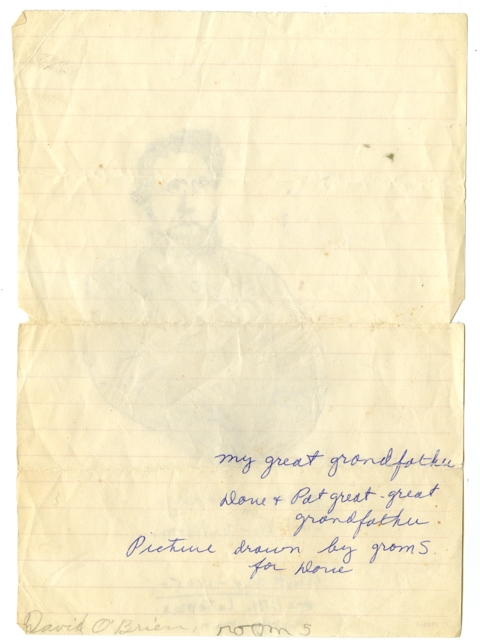 my great grandfather
Dave + Pat great-great
grandfather.
Picture drawn by grom S.
for Dave
David O'Brien, room 5